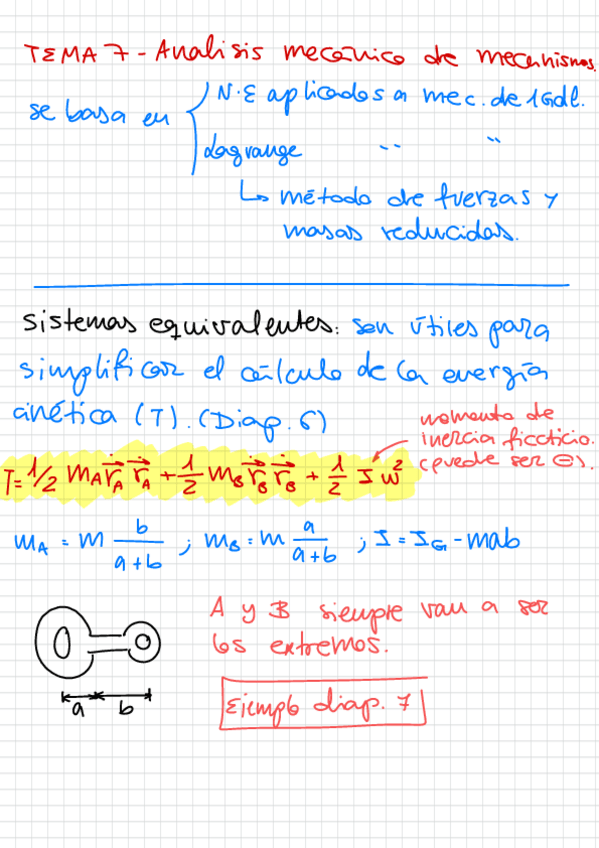 TEMA 7 - Analisis mecánico de mecanismos.
se basa en
N.E aplicados a mec. de 1Gdl.
Lagrange " "
↳ método de fuerzas y
masas reducidas.
Sistemas equivalentes: son útiles para
simplificar el cálculo de la energía
cinética (T). (Diap. 6)
momento de
inercia ficticio.
(puede ser ⊖).
T = 1/2 m_A \vec{\dot{r}}_A \vec{\dot{r}}_A + 1/2 m_B \vec{\dot{r}}_B \vec{\dot{r}}_B + 1/2 I w²
m_A = m b/(a+b) ; m_B = m a/(a+b) ; I = I_G - mab
A y B siempre van a ser
los extremos.
a b
Ejemplo diap. 7